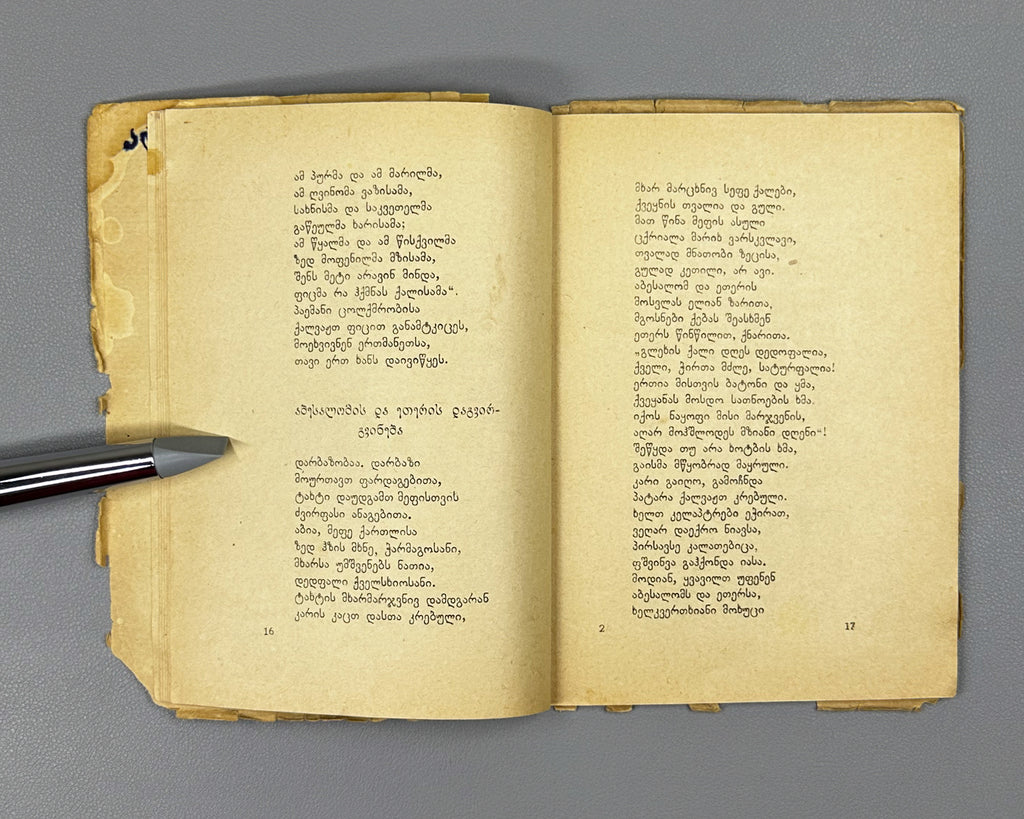 ამ პურმა და ამ მარილმა,
ამ ღვინომა ვაზისამა,
სახნისმა და საკვეთელმა
გაწეულმა ხარისამა;
ამ წყალმა და ამ წისქვილმა
ზედ მოფენილმა მზისამა,
შენს მეტი არავინ მინდა,
ფიცმა რა ჰქმნას ქალისამა“.
პაემანი ცოლქმრობისა
ქალვაჟთ ფიცით განამტკიცეს,
მოეხვივნენ ერთმანეთსა,
თავი ერთ ხანს დაივიწყეს.
აბესალომის და ეთერის დაგვირ-
გვინება
დარბაზობაა. დარბაზი
მოურთავთ ფარდაგებითა,
ტახტი დაუდგამთ მეფისთვის
ძვირფასი ანაგებითა.
აბია, მეფე ქართლისა
ზედ ჰზის მხნე, ჭარმაგოსანი,
მხარსა უმშვენებს ნათია,
დედფალი ქველსხიოსანი.
ტახტის მხარმარჯვნივ დამდგარან
კარის კაცთ დასთა კრებული,
16
მხარ მარცხნივ სეფე ქალები,
ქვეყნის თვალია და გული.
მათ წინა მეფის ასული
ცქრიალა მარიხ ვარსკვლავი,
თვალად მნათობი ზეცისა,
გულად კეთილი, არ ავი.
აბესალომ და ეთერის
მოსვლას ელიან ზარითა,
მგოსნები ქებას შეასხმენ
ეთერს წინწილით, ქნარითა.
„გლეხის ქალი დღეს დედოფალია,
ქველი, ჭირთა მძლე, სატურფალია!
ერთია მისთვის ბატონი და ყმა,
ქვეყანას მოსდო სათნოების ხმა.
იქოს ნაყოფი მისი მარჯვენის,
აღარ მოჰშლოდეს მზიანი დღენი“!
შეწყდა თუ არა ხოტბის ხმა,
გაისმა მწყობრად მაყრული.
კარი გაიღო, გამოჩნდა
პატარა ქალვაჟთ კრებული.
ხელთ კელაპტრები ეჭირათ,
ვეღარ დაექრო ნიავსა,
პირსავსე კალათებიცა,
ფშვინვა გაჰქონდა იასა.
მოდიან, ყვავილთ უფენენ
აბესალომს და ეთერსა,
ხელკვერთხიანი მოხუცი
2
17